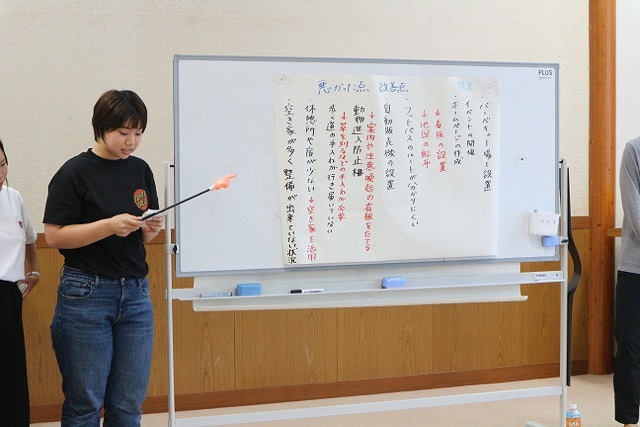 悪かった点、改善点
・バーベキュー場を設置
・イベントの開催
・ホームページの作成
→看板の設置
→地図の配布
・フットパスのルートが分かりにくい
自動販売機の設置
→案内や注意喚起の看板をたてる
動物進入防止柵
→草を刈るなどの手入れが必要
・歩く道の手入れが行き届いていない
・休憩所や店が少ない→空き家を活用
・空き家が多く整備が出来ていない状況
PLUS